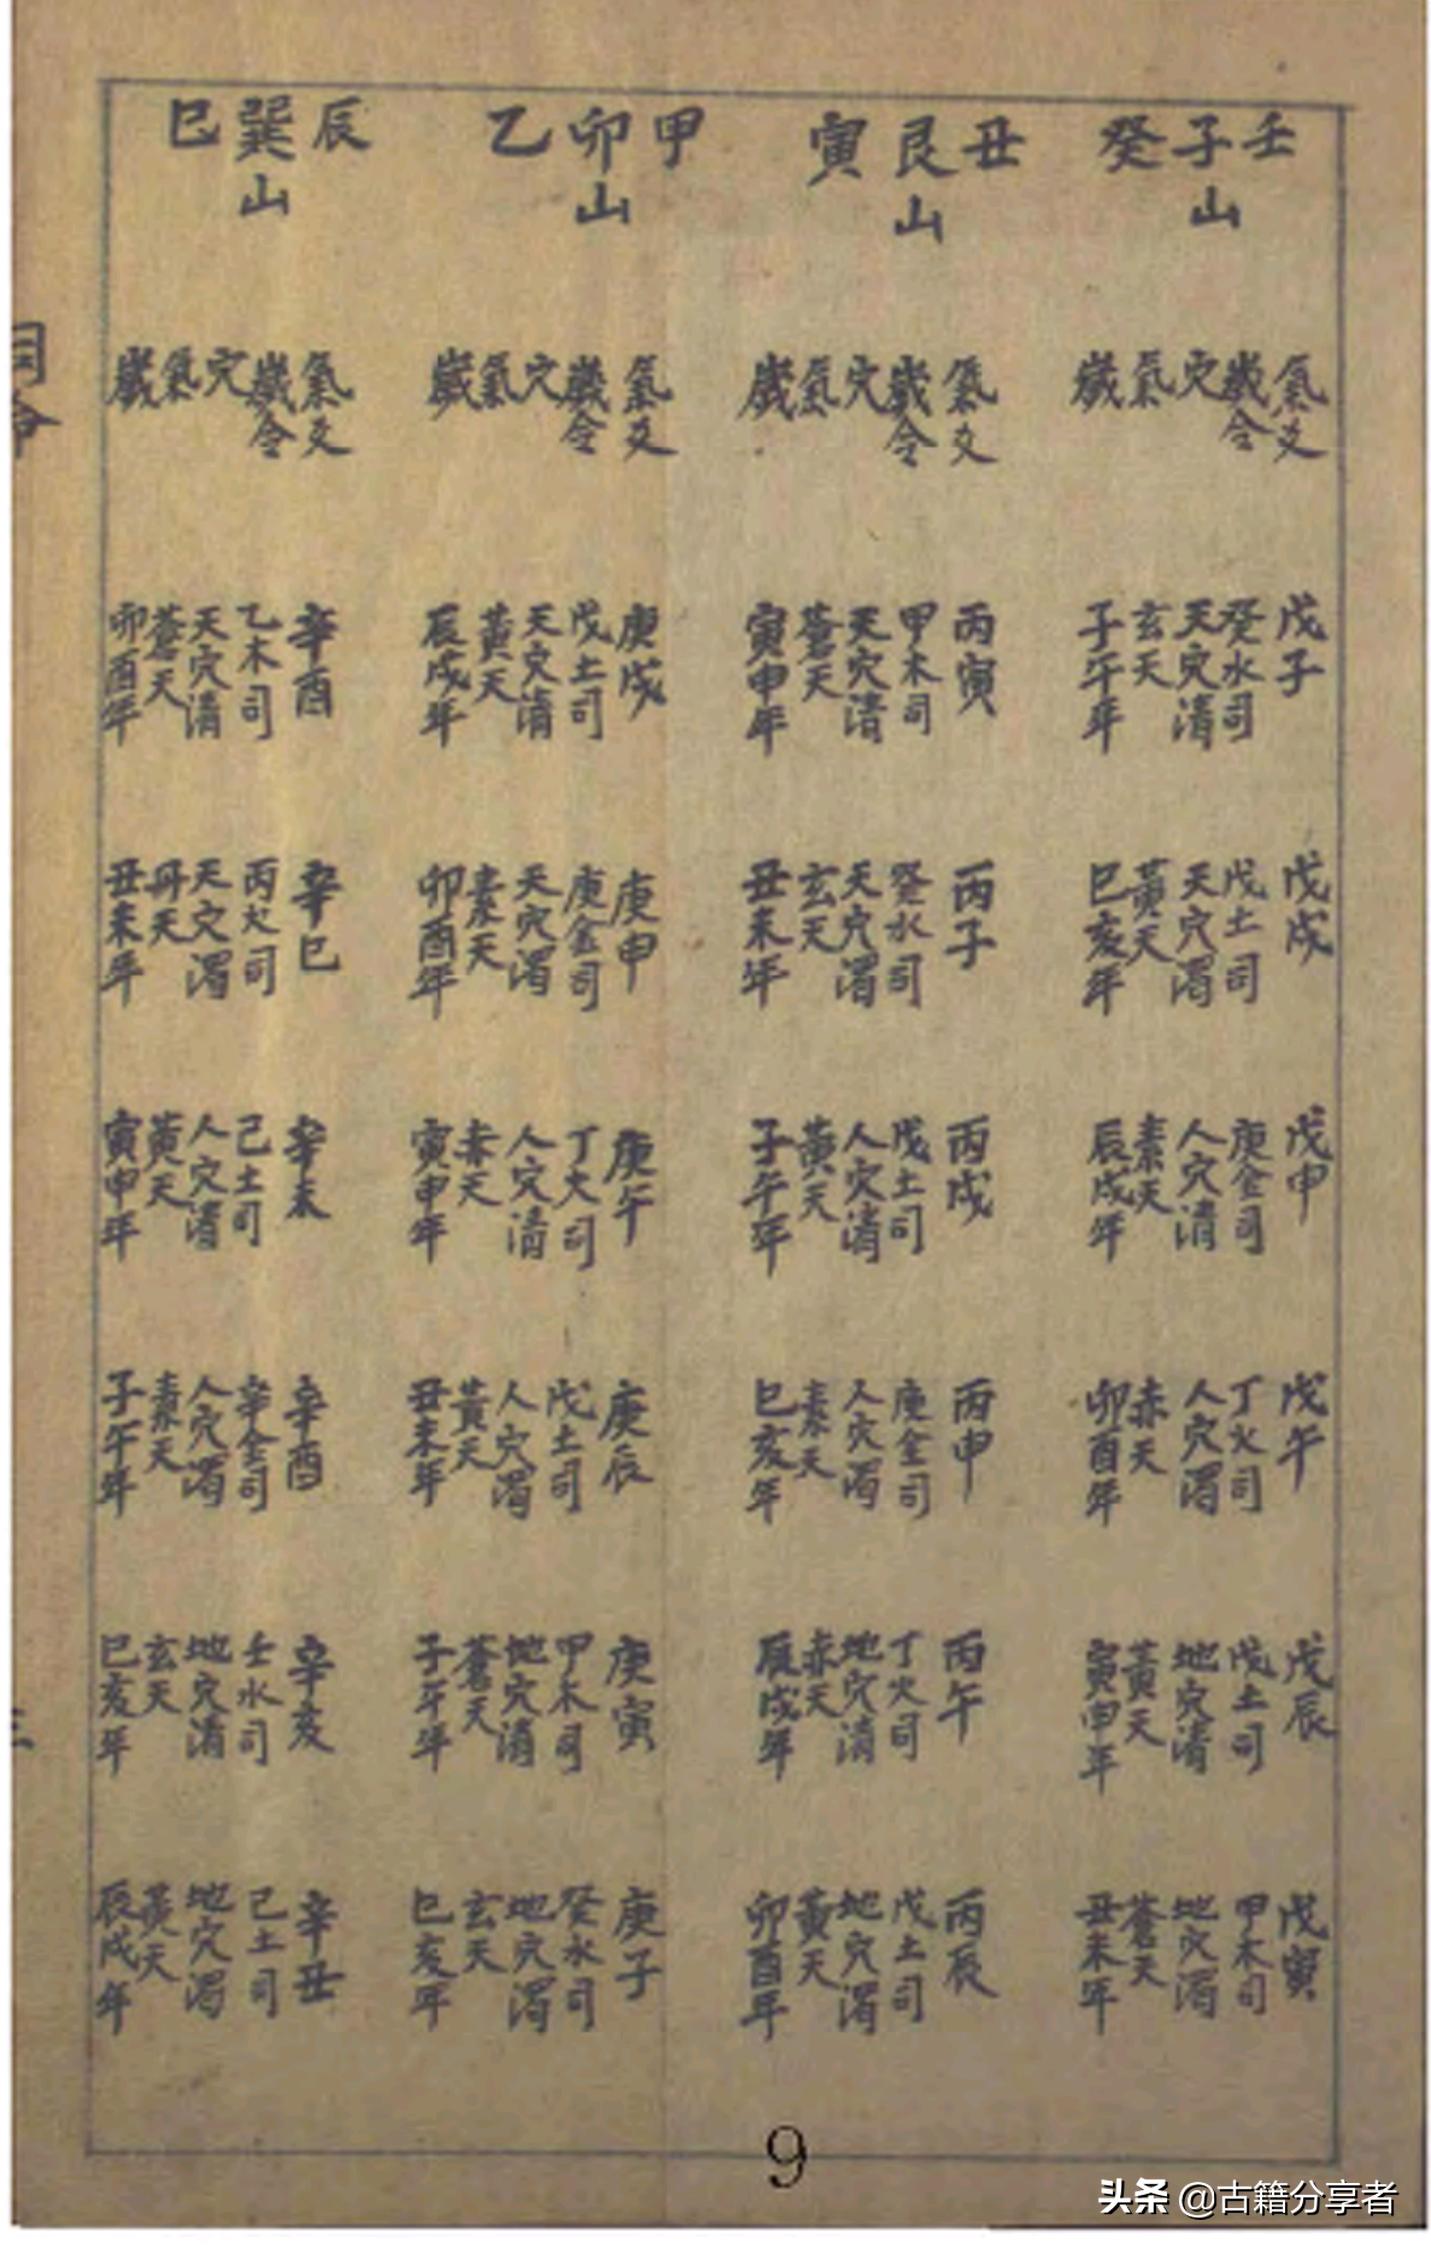 壬子癸山
氣爻 戊子 戊戌 戊申 戊午 戊辰 戊寅
歲令 癸水司 戊土司 庚金司 丁火司 戊土司 甲木司
穴 天穴清 天穴濁 人穴清 人穴濁 地穴清 地穴濁
氣 玄天 黃天 素天 赤天 黃天 蒼天
歲 子午年 巳亥年 辰戌年 卯酉年 寅申年 丑未年
丑艮寅山
氣爻 丙寅 丙子 丙戌 丙申 丙午 丙辰
歲令 甲木司 癸水司 戊土司 庚金司 丁火司 戊土司
穴 天穴清 天穴濁 人穴清 人穴濁 地穴清 地穴濁
氣 蒼天 玄天 黃天 素天 赤天 黃天
歲 寅申年 丑未年 子午年 巳亥年 辰戌年 卯酉年
甲卯乙山
氣爻 庚戌 庚申 庚午 庚辰 庚寅 庚子
歲令 戊土司 庚金司 丁火司 戊土司 甲木司 癸水司
穴 天穴清 天穴濁 人穴清 人穴濁 地穴清 地穴濁
氣 黃天 素天 赤天 黃天 蒼天 玄天
歲 辰戌年 卯酉年 寅申年 丑未年 子午年 巳亥年
辰巽巳山
氣爻 辛酉 辛巳 辛未 辛酉 辛亥 辛丑
歲令 乙木司 丙火司 己土司 辛金司 壬水司 己土司
穴 天穴清 天穴濁 人穴清 人穴濁 地穴清 地穴濁
氣 蒼天 丹天 黃天 素天 玄天 黃天
歲 卯酉年 丑未年 寅申年 子午年 巳亥年 辰戌年
9
头条 @古籍分享者